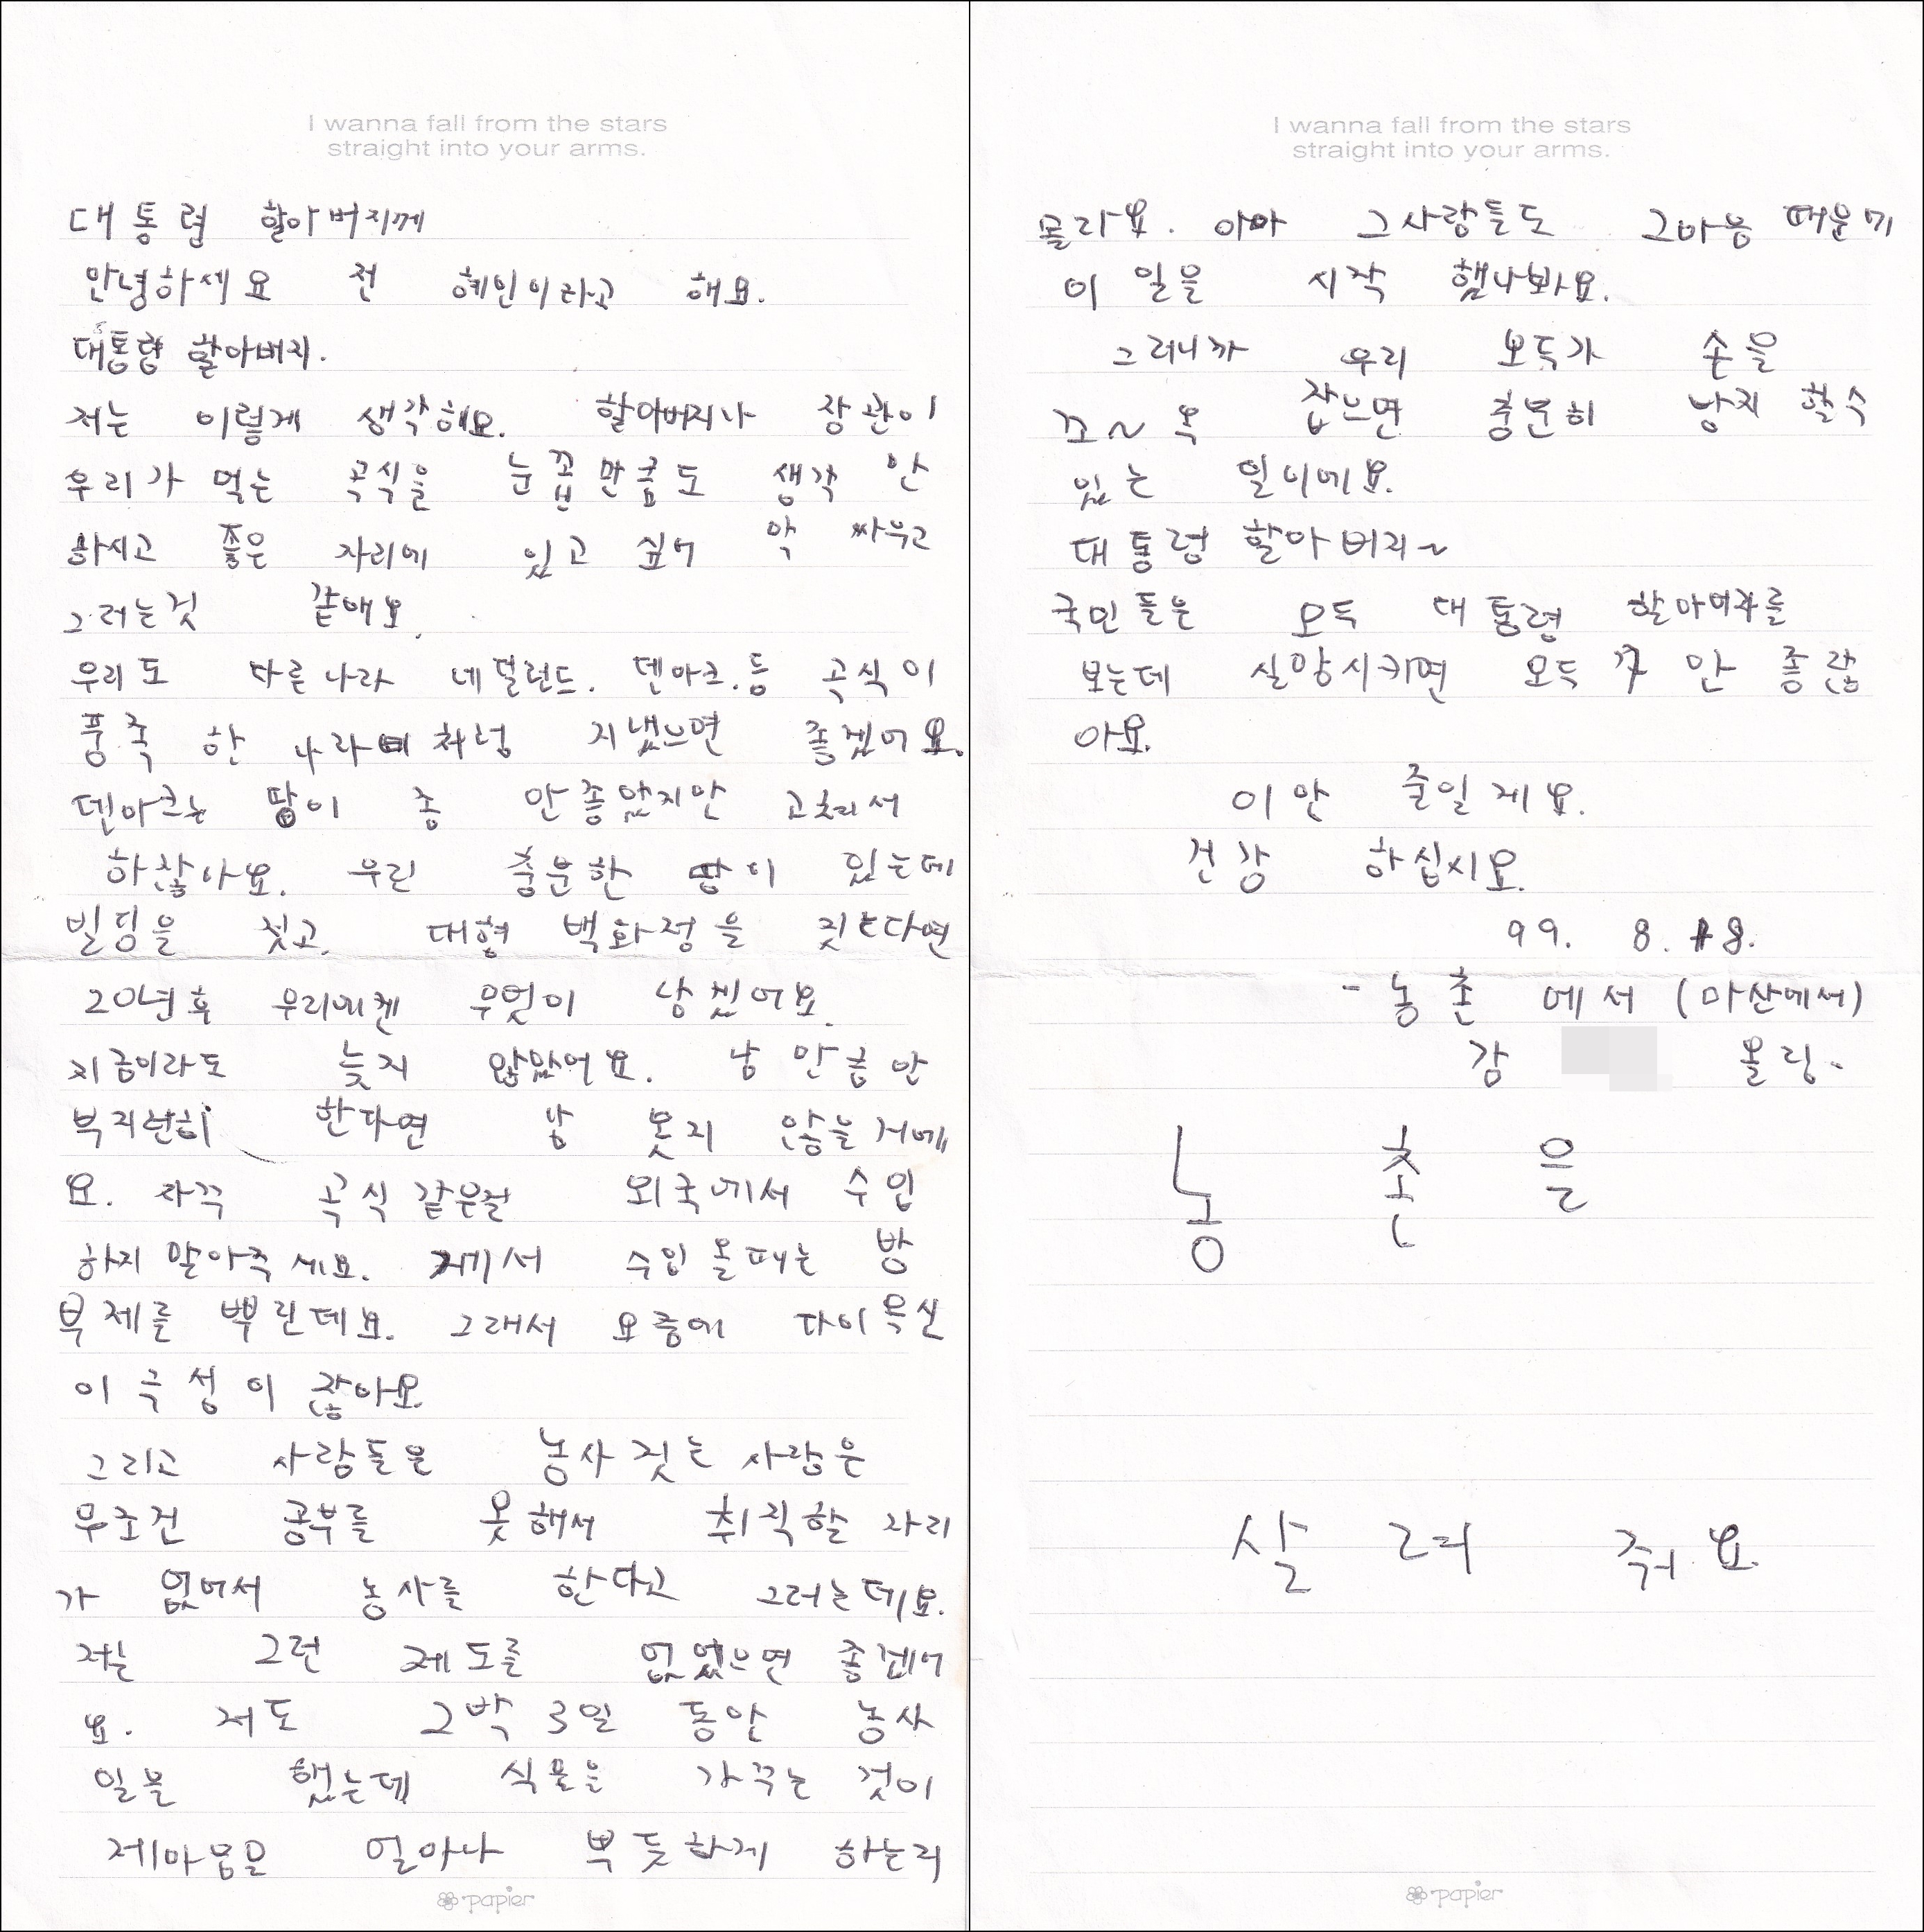 I wanna fall from the stars
straight into your arms.
대통령 할아버지께
안녕하세요 전 혜인이라고 해요.
대통령 할아버지.
저는 이렇게 생각해요. 할아버지나 장관이
우리가 먹는 곡식을 눈꼽만큼도 생각 안
하시고 좋은 자리에 있고 싶어 막 싸우고
그러는것 같애요.
우리도 다른나라 네덜런드. 덴마크.등 곡식이
풍족 한 나라 처럼 지냈으면 좋겠어요.
덴마크는 땅이 좀 안좋았지만 고쳐서
하잖아요. 우린 충분한 땅이 있는데
빌딩을 짓고. 대형 백화정을 짓는다면
20년후 우리에겐 무엇이 남겠어요.
지금이라도 늦지 않았어요. 남 만큼만
부지런히 한다면 남 못지 않을거에
요. 자꾸 곡식 같은걸 외국에서 수입
하지 말아주세요. 수입 올때는 방
부제를 뿌린데요. 그래서 요즘에 다이옥신
이 극성이 잖아요.
그리고 사람들은 농사 짓는 사람은
무조건 공부를 못해서 취직할 자리
가 없어서 농사를 한다고 그러는데요.
저는 그런 제도를 없었으면 좋겠어
요. 저도 2박 3일 동안 농사
일을 했는데 식물을 가꾸는 것이
제마음을 얼마나 뿌듯하게 하는리
papier
I wanna fall from the stars
straight into your arms.
몰라요. 아마 그사람들도 그마음 때문에
이 일을 시작 했나봐요.
그러니까 우리 모두가 손을
꼬~옥 잡으면 충분히 남지 할수
있는 일이에요.
대통령 할아버지~
국민들은 모두 대통령 할아버지를
보는데 실망시키면 모두 안 좋잖
아요.
이만 줄일게요.
건강 하십시요.
99. 8. 18.
- 농촌 에서 (마산에서)
감 올림.
농 촌 을
살 려 줘 요.
papier